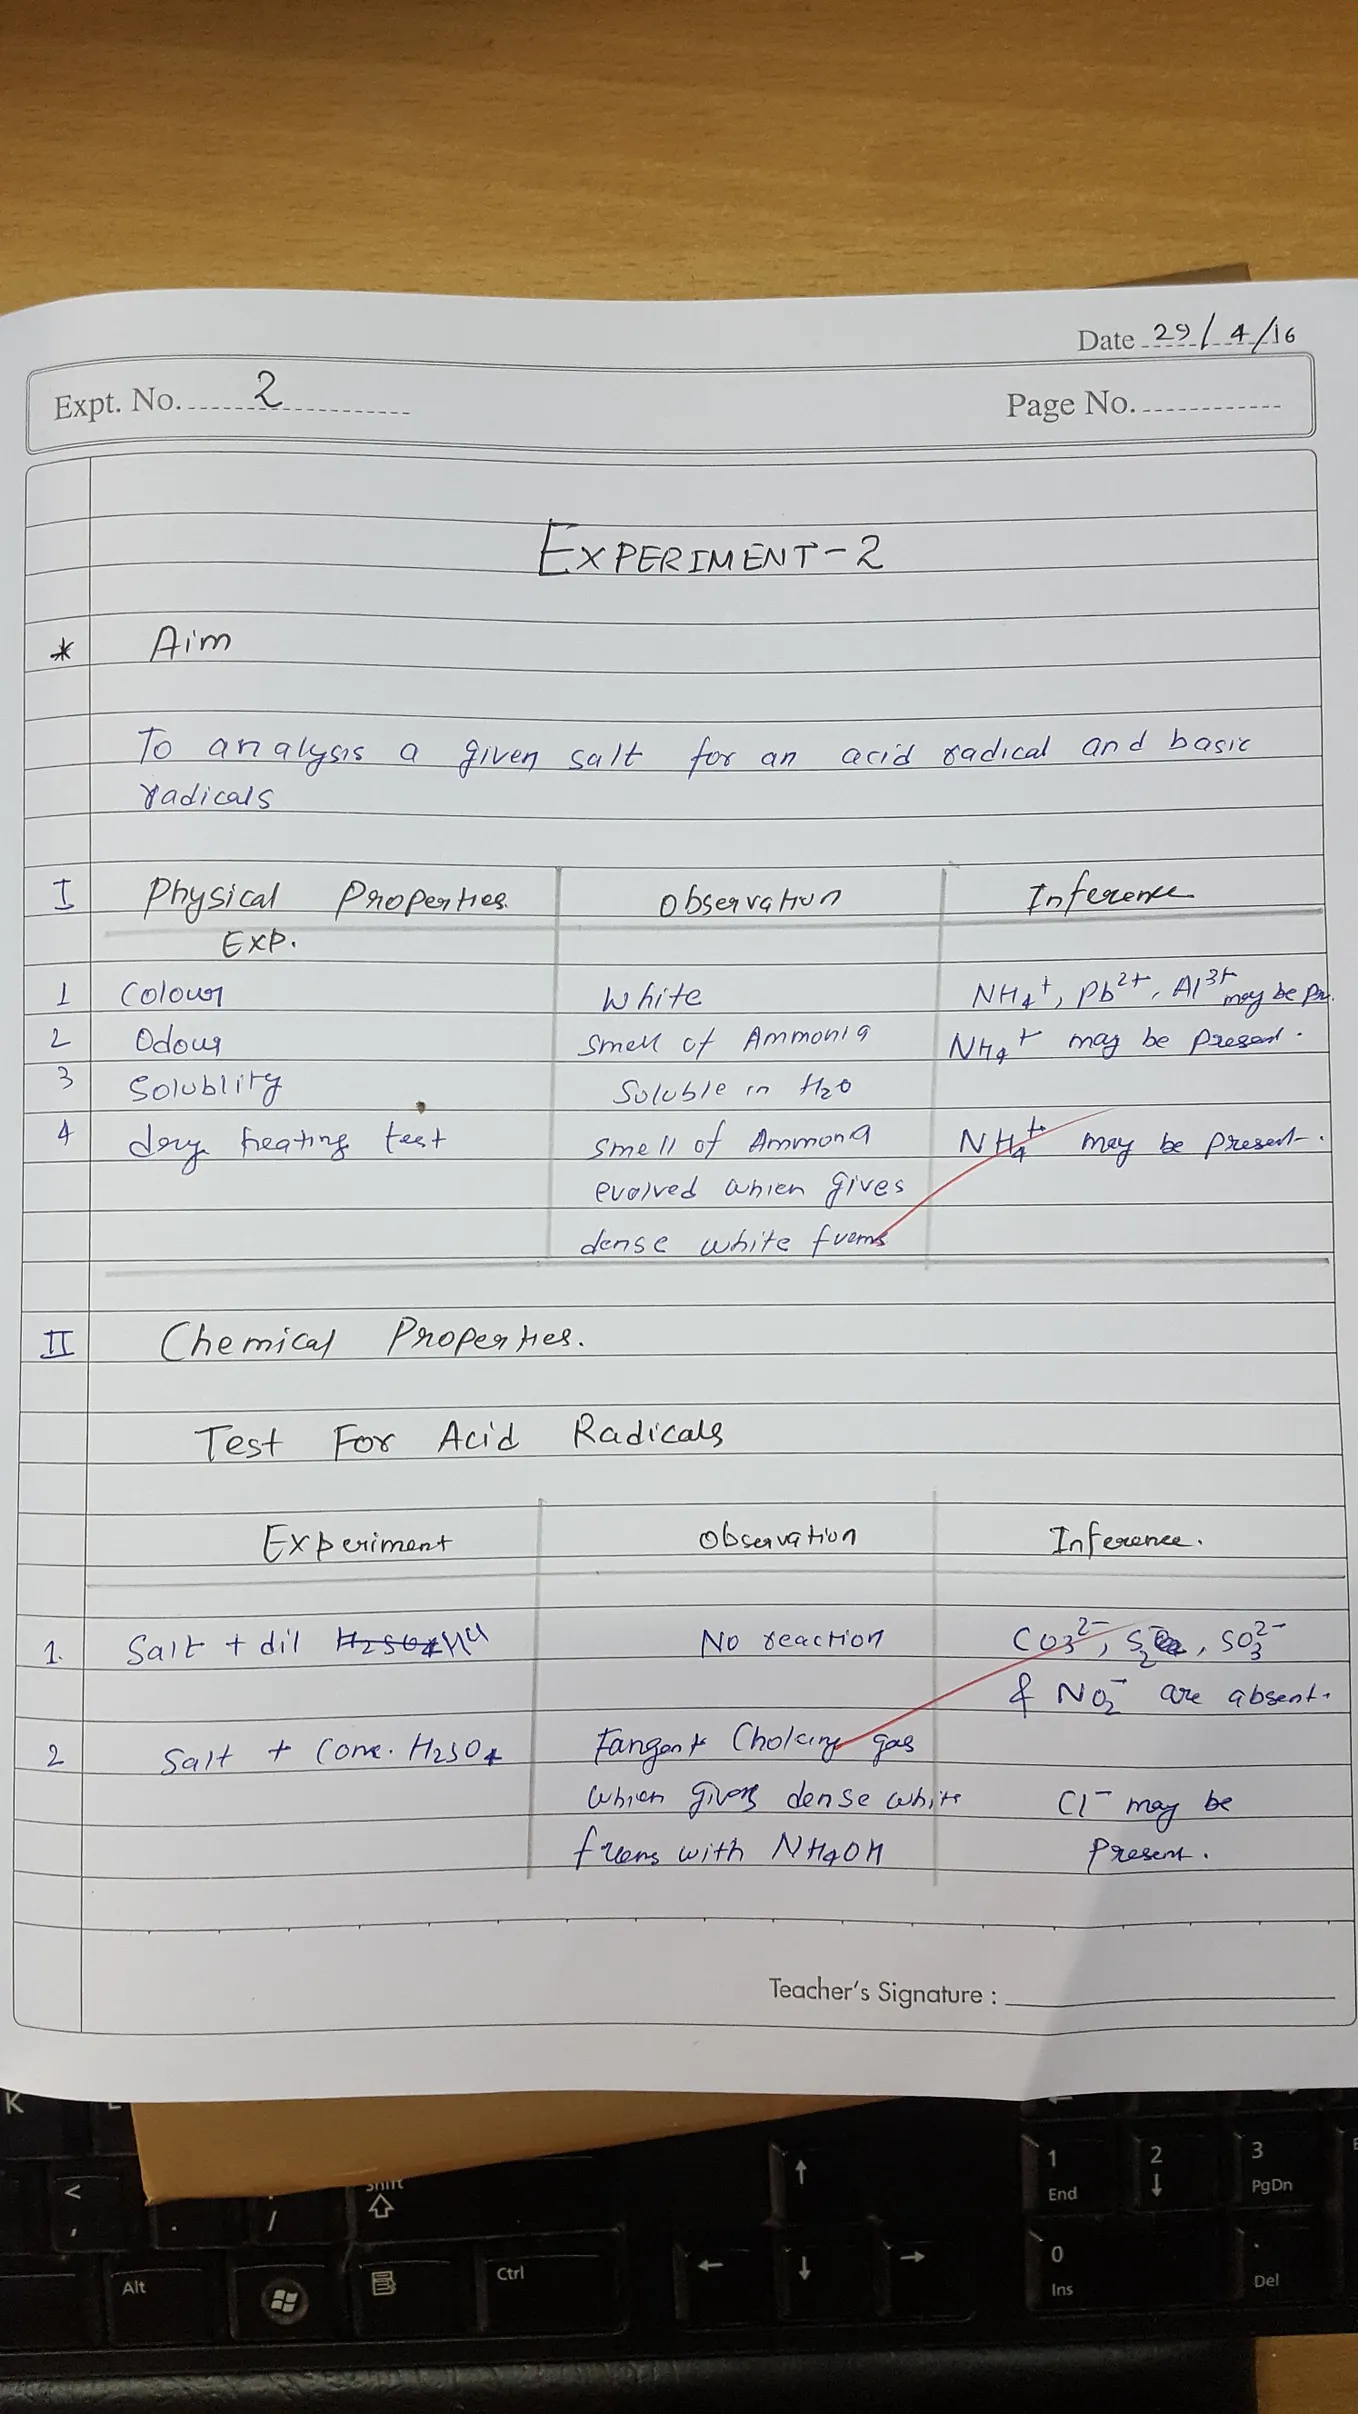 Date 29/4/16
Expt. No. 2
Page No.
EXPERIMENT-2
* Aim
To analysis a given salt for an acid radical and basic
radicals
I Physical Properties Observation Inference
Exp.
1 Colour White NH4+, Pb2+, Al3+ may be pr.
2 Odour Smell of Ammonia NH4+ may be present.
3 Solublity Soluble in H2O
4 dry heating test Smell of Ammona NH4+ may be present.
evolved which gives
dense white fuems
II Chemical Properties.
Test For Acid Radicals
Experiment Observation Inference.
1. Salt + dil H2SO4 HCl No reaction CO3 2-, S2-, SO3 2-
& NO2- are absent.
2 Salt + Conc. H2SO4 Fangent Choking gas
which gives dense white Cl- may be
fuems with NH4OH present.
Teacher's Signature :
K
<
,
.
/
Shift
Alt
Ctrl
1
End
2
3
PgDn
0
Ins
.
Del